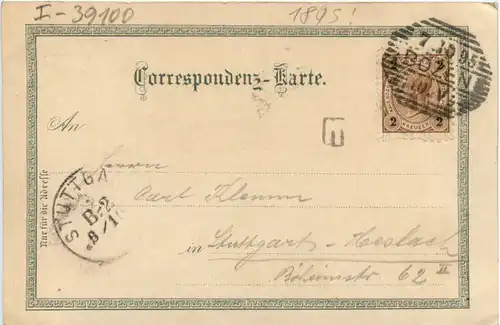 I-39100
1895!
7 10 95
BOZEN
2 KREUZER 2
Correspondenz-Karte.
An
T
Herrn
Carl Klemm
in Stuttgart-Heslach
Böheimstr 62 II
Nur für die Adresse
STUTTGA
B.2
8/10